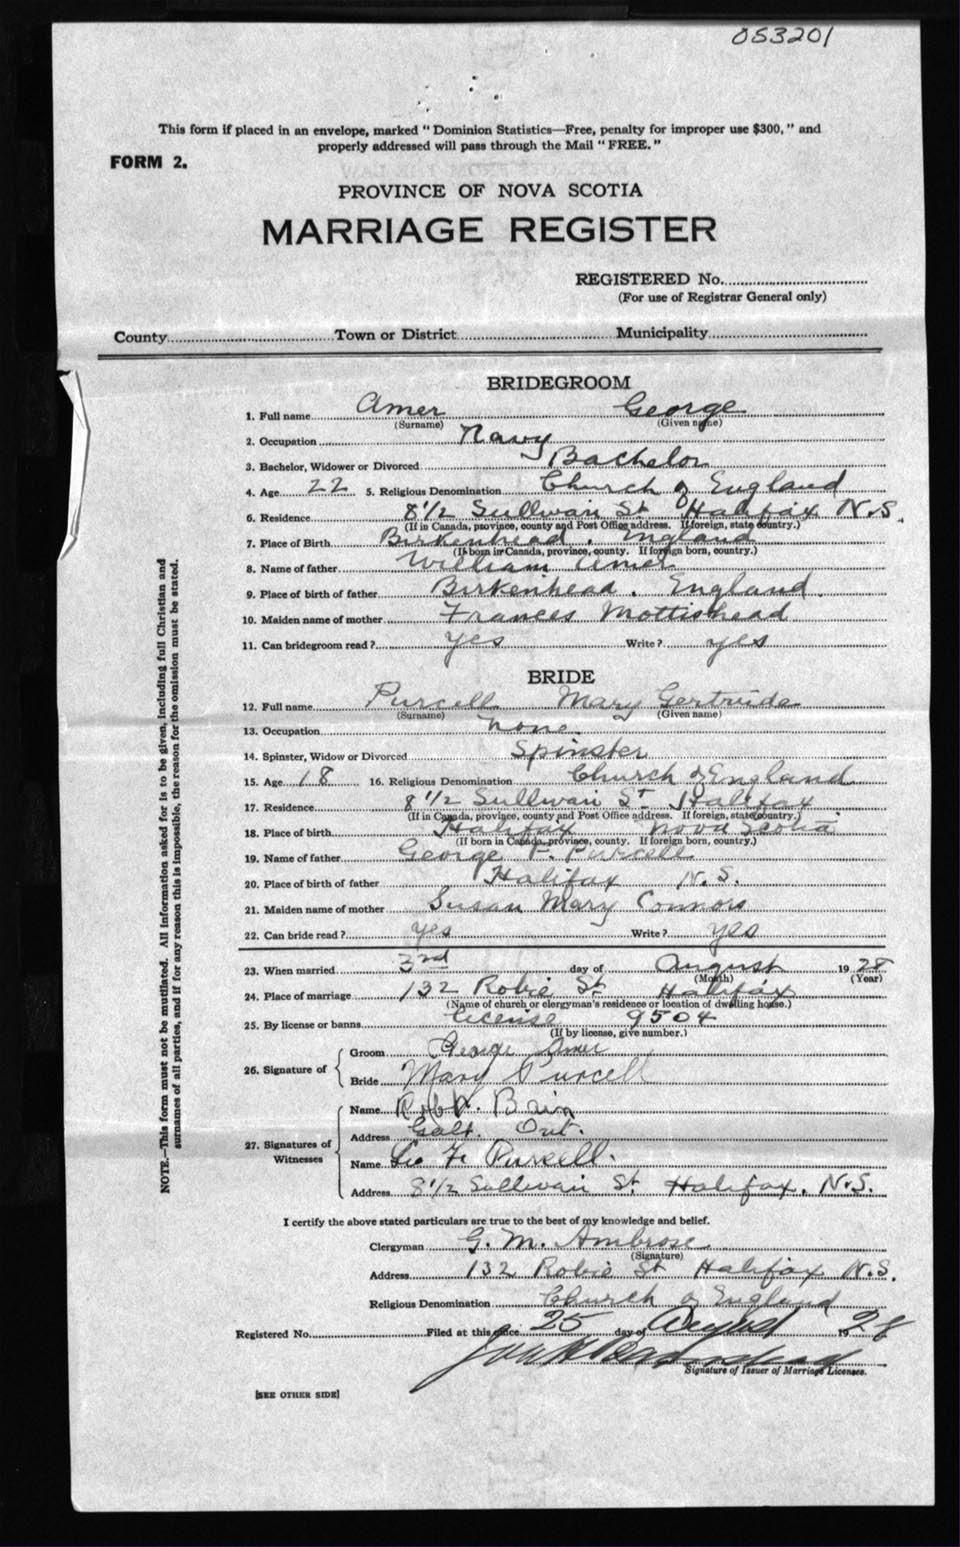 053201
This form if placed in an envelope, marked "Dominion Statistics—Free, penalty for improper use $300," and
properly addressed will pass through the Mail "FREE."
FORM 2.
PROVINCE OF NOVA SCOTIA
MARRIAGE REGISTER
REGISTERED No.
(For use of Registrar General only)
County Town or District Municipality
BRIDEGROOM
1. Full name Amer George
(Surname) (Given name)
2. Occupation Navy
3. Bachelor, Widower or Divorced Bachelor
4. Age 22 5. Religious Denomination Church of England
6. Residence 8 1/2 Sullivan St Halifax N.S.
(If in Canada, province, county and Post Office address. If foreign, state country.)
7. Place of Birth Birkenhead. England
(If born in Canada, province, county. If foreign born, country.)
8. Name of father William Amer
9. Place of birth of father Birkenhead. England.
10. Maiden name of mother Frances Mottishead
11. Can bridegroom read? yes Write? yes
BRIDE
12. Full name Purcell Mary Gertrude
(Surname) (Given name)
13. Occupation none
14. Spinster, Widow or Divorced Spinster
15. Age 18 16. Religious Denomination Church of England
17. Residence 8 1/2 Sullivan St. Halifax
(If in Canada, province, county and Post Office address. If foreign, state country.)
18. Place of birth Halifax Nova Scotia
(If born in Canada, province, county. If foreign born, country.)
19. Name of father George P. Purcell
20. Place of birth of father Halifax N.S.
21. Maiden name of mother Susan Mary Connors
22. Can bride read? yes Write? yes
23. When married 3rd day of August 1928
(Month) (Year)
24. Place of marriage 132 Robie St Halifax
(Name of church or clergyman's residence or location of dwelling house.)
25. By license or banns License 9504
(If by license, give number.)
26. Signature of
Groom George Amer
Bride Mary Purcell
27. Signatures of Witnesses
Name Robt. Bain
Address Galt. Ont.
Name Leo F. Purcell.
Address 8 1/2 Sullivan St. Halifax. N.S.
I certify the above stated particulars are true to the best of my knowledge and belief.
Clergyman G. M. Ambrose
(Signature)
Address 132 Robie St Halifax N.S.
Religious Denomination Church of England
Registered No. Filed at this office 25 day of August 1928
Signature of Issuer of Marriage Licenses.
[SEE OTHER SIDE]
NOTE.—This form must not be mutilated. All information asked for is to be given, including full Christian and
surnames of all parties, and if for any reason this is impossible, the reason for the omission must be stated.